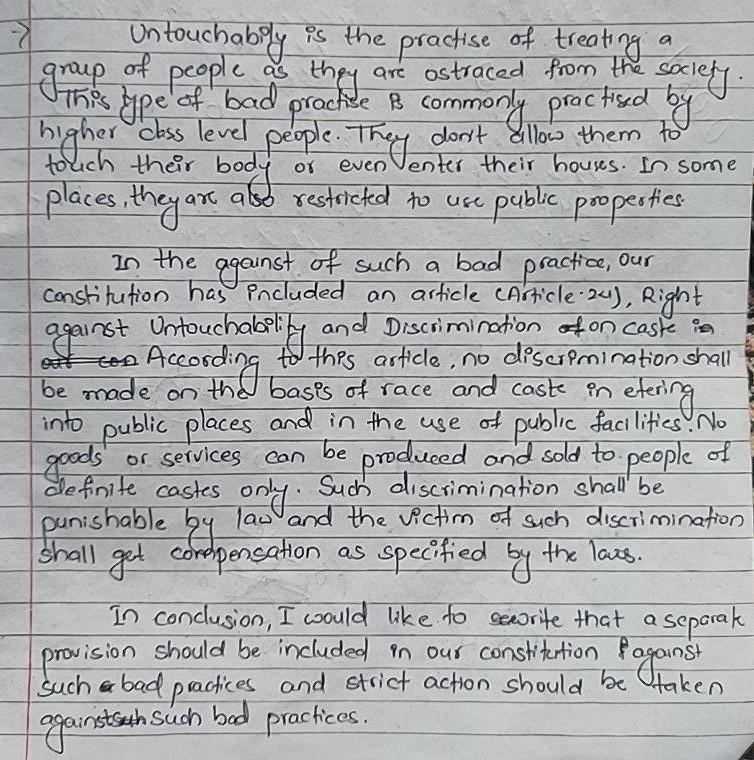 → Untouchability is the practise of treating a
group of people as they are ostraced from the society.
This type of bad practise is commonly practised by
higher class level people. They don't allow them to
touch their body or even enter their houses. In some
places, they are also restricted to use public properties
In the against of such a bad practice, our
constitution has included an article (Article-24), Right
against Untouchability and Discrimination on caste
According to this article, no discrimination shall
be made on the basis of race and caste in etering
into public places and in the use of public facilities. No
goods or services can be produced and sold to people of
definite castes only. Such discrimination shall be
punishable by law and the victim of such discrimination
shall get compensation as specified by the laws.
In conclusion, I would like to write that a separate
provision should be included in our constitution against
such bad practices and strict action should be taken
against such bad practices.